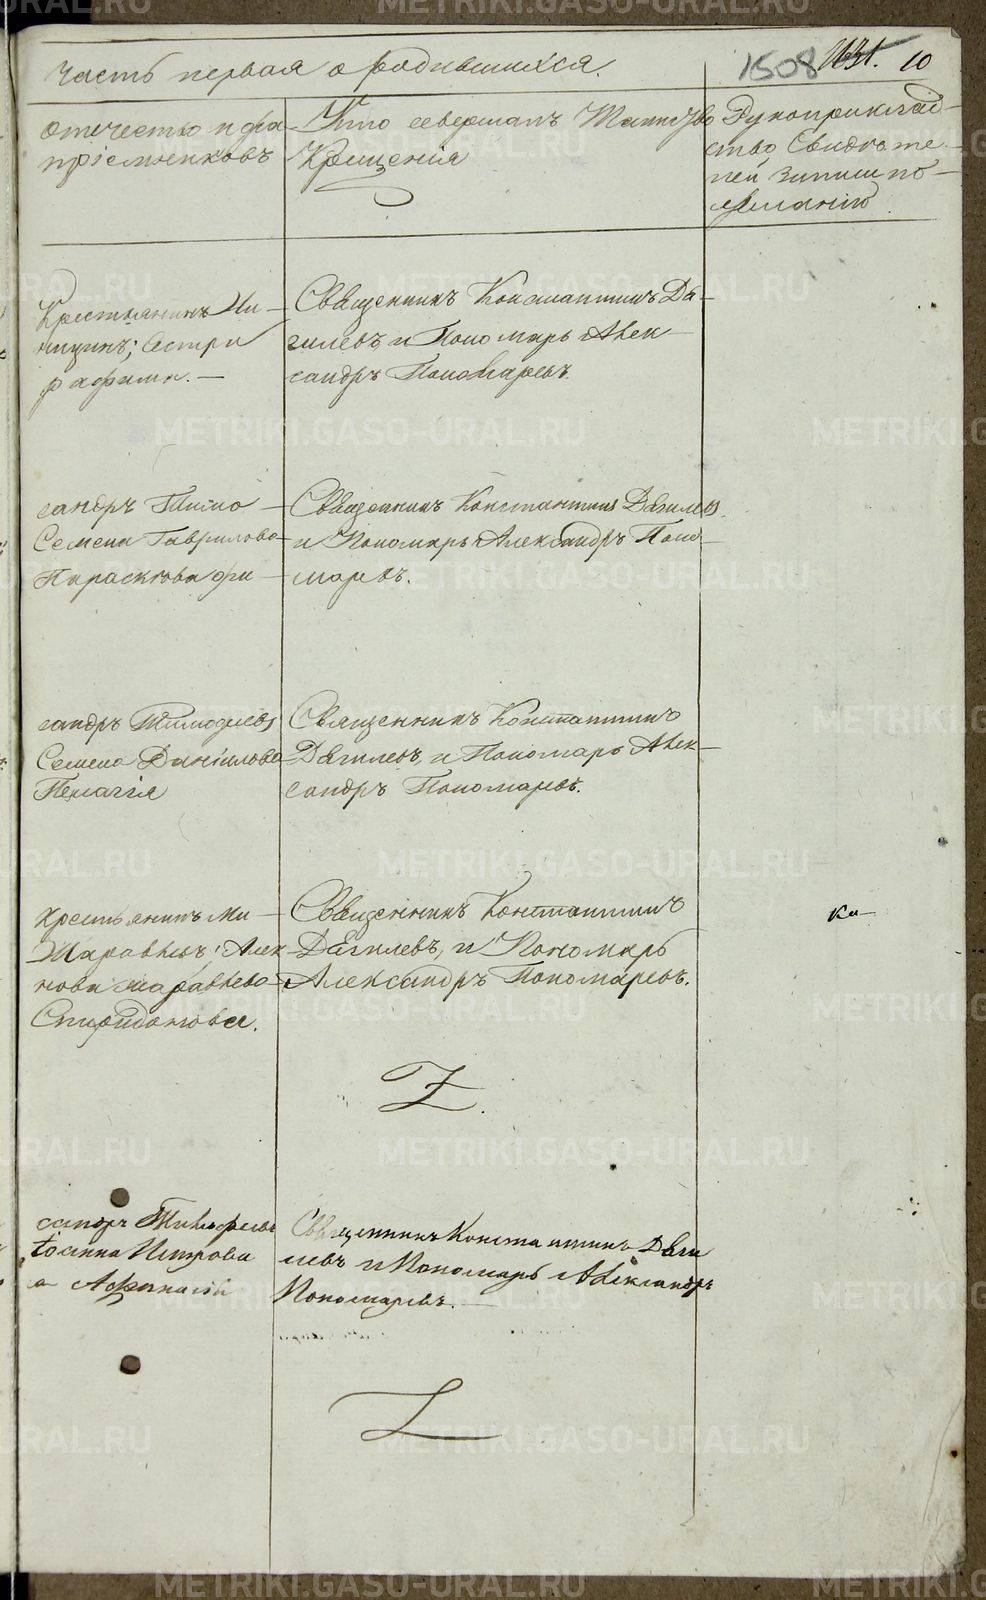 часть первая о родившихся.
1508
10
отчество и фа-
пріемниковъ
Кто совершалъ Таинство
Крещенія
Рукоприклад-
ство Свидѣте-
лей записи по
желанію
Крестьянинъ Ни-
сестра
Священникъ Константинъ Дя-
гилевъ и Пономарь Алек-
сандръ Пономаревъ.
сандръ Тимо-
Семена Гаврилова
Параскева
Священникъ Константинъ Дягилевъ
и Пономарь Александръ Поно-
маревъ.
сандръ Тимофеевъ
Семена Данилова
Пелагія
Священникъ Константинъ
Дягилевъ, и Пономарь Алек-
сандръ Пономаревъ.
крестьянинъ Ми-
Журавлевъ; Алек-
нова Журавлева
Спиридонова.
Священникъ Константинъ
Дягилевъ, и Пономарь
Александръ Пономаревъ.
сандръ Тимофеевъ
Іоанна Петрова
а Афанасій
Священникъ Константинъ Дяги
левъ и Пономарь Александръ
Пономаревъ.
METRIKI.GASO-URAL.RU